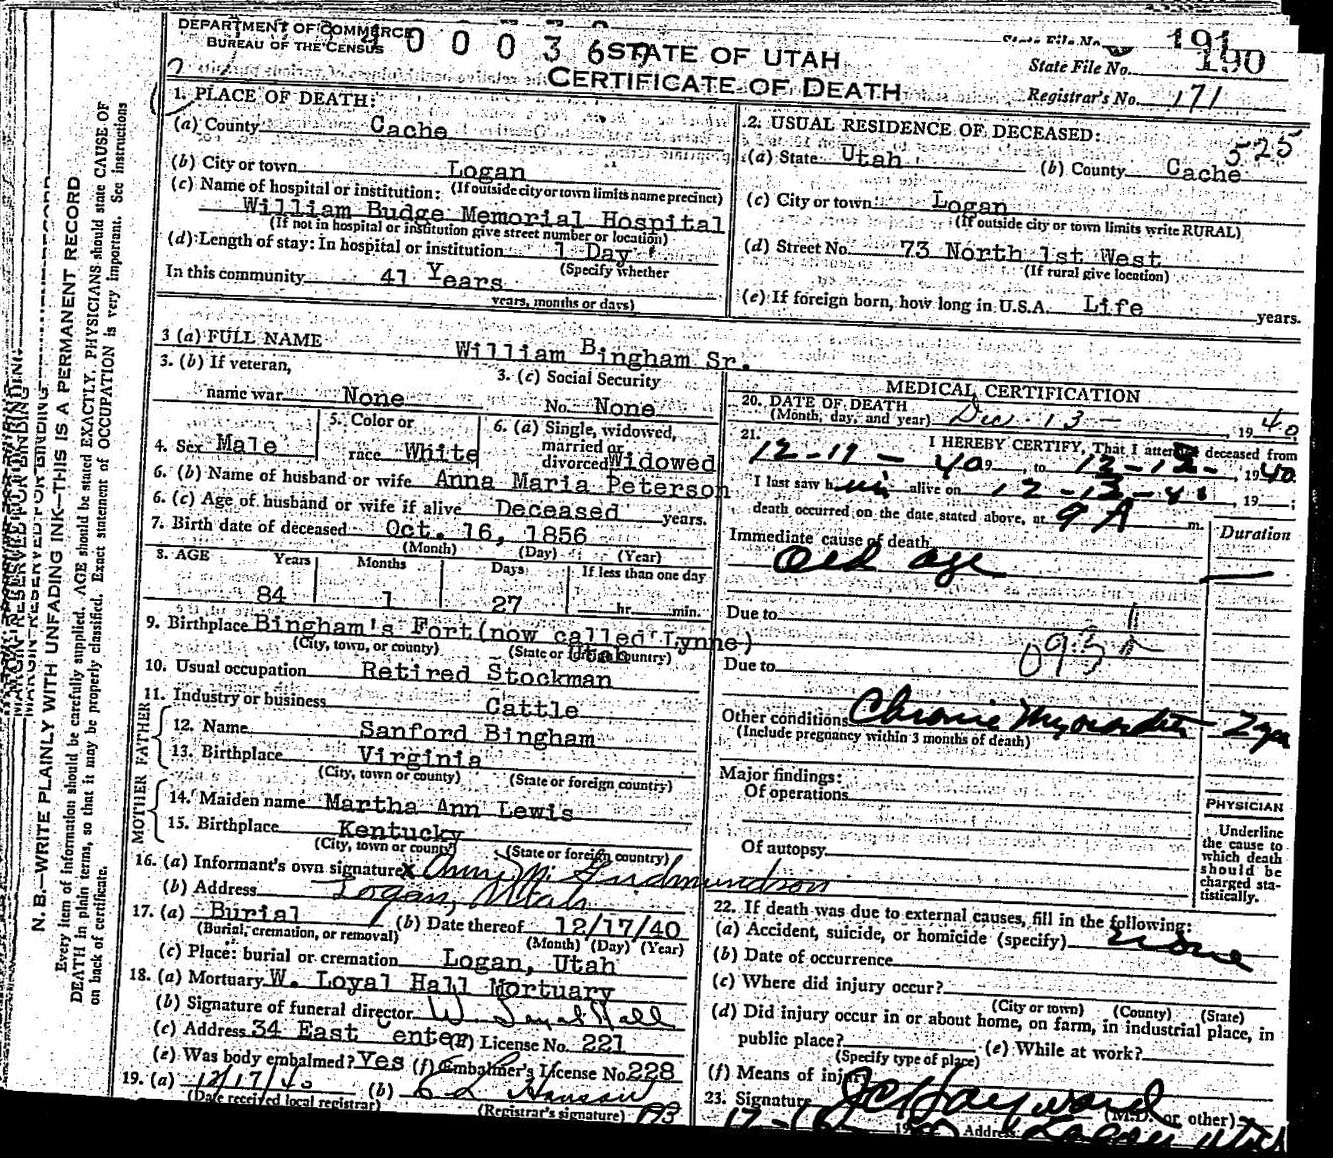 DEPARTMENT OF COMMERCE
BUREAU OF THE CENSUS
STATE OF UTAH
CERTIFICATE OF DEATH
State File No. 191
State File No. 190
Registrar's No. 171
1. PLACE OF DEATH:
(a) County Cache
(b) City or town Logan
(If outside city or town limits name precinct)
(c) Name of hospital or institution:
William Budge Memorial Hospital
(If not in hospital or institution give street number or location)
(d) Length of stay: In hospital or institution 1 Day
(Specify whether
In this community 41 Years
years, months or days)
2. USUAL RESIDENCE OF DECEASED:
525
(a) State Utah (b) County Cache
(c) City or town Logan
(If outside city or town limits write RURAL)
(d) Street No. 73 North 1st West
(If rural give location)
(e) If foreign born, how long in U.S.A. Life years.
3 (a) FULL NAME William Bingham Sr.
3. (b) If veteran,
name war None
3. (c) Social Security
No. None
4. Sex Male
5. Color or
race White
6. (a) Single, widowed,
married or
divorced Widowed
6. (b) Name of husband or wife Anna Maria Peterson
6. (c) Age of husband or wife if alive Deceased years.
7. Birth date of deceased Oct. 16, 1856
(Month) (Day) (Year)
8. AGE Years Months Days If less than one day
84 1 27 hr. min.
9. Birthplace Bingham's Fort (now called Lynne)
Utah
(City, town, or county) (State or foreign country)
10. Usual occupation Retired Stockman
11. Industry or business Cattle
FATHER
12. Name Sanford Bingham
13. Birthplace Virginia
(City, town or county) (State or foreign country)
MOTHER
14. Maiden name Martha Ann Lewis
15. Birthplace Kentucky
(City, town or county) (State or foreign country)
16. (a) Informant's own signature x M. Gudmundson
(b) Address Logan, Utah
17. (a) Burial (b) Date thereof 12/17/40
(Burial, cremation, or removal) (Month) (Day) (Year)
(c) Place: burial or cremation Logan, Utah
18. (a) Mortuary W. Loyal Hall Mortuary
(b) Signature of funeral director W. Loyal Hall
(c) Address 34 East Center License No. 221
(e) Was body embalmed? Yes (f) Embalmer's License No. 228
19. (a) 12/17/40 (b) Hansen
(Date received local registrar) (Registrar's signature)
MEDICAL CERTIFICATION
20. DATE OF DEATH
(Month, day, and year) Dec. 13 1940
21. I HEREBY CERTIFY, That I attended deceased from
12-11-40, to 12-13-, 1940
I last saw him alive on 12-13-40, 19 ;
death occurred on the date stated above, at 9 A m.
Immediate cause of death Duration
Old age
Due to
Due to
Other conditions Chronic Myocarditis 2 yrs
(Include pregnancy within 3 months of death)
Major findings:
Of operations
Of autopsy
PHYSICIAN
Underline
the cause to
which death
should be
charged sta-
tistically.
22. If death was due to external causes, fill in the following:
(a) Accident, suicide, or homicide (specify) none
(b) Date of occurrence
(c) Where did injury occur?
(City or town) (County) (State)
(d) Did injury occur in or about home, on farm, in industrial place, in
public place? (e) While at work?
(Specify type of place)
(f) Means of injury
23. Signature J C Hayward (M.D. or other)
Address Logan Utah
N. B.—WRITE PLAINLY WITH UNFADING INK—THIS IS A PERMANENT RECORD
Every item of information should be carefully supplied. AGE should be stated EXACTLY. PHYSICIANS should state CAUSE OF
DEATH in plain terms, so that it may be properly classified. Exact statement of OCCUPATION is very important. See instructions
on back of certificate.